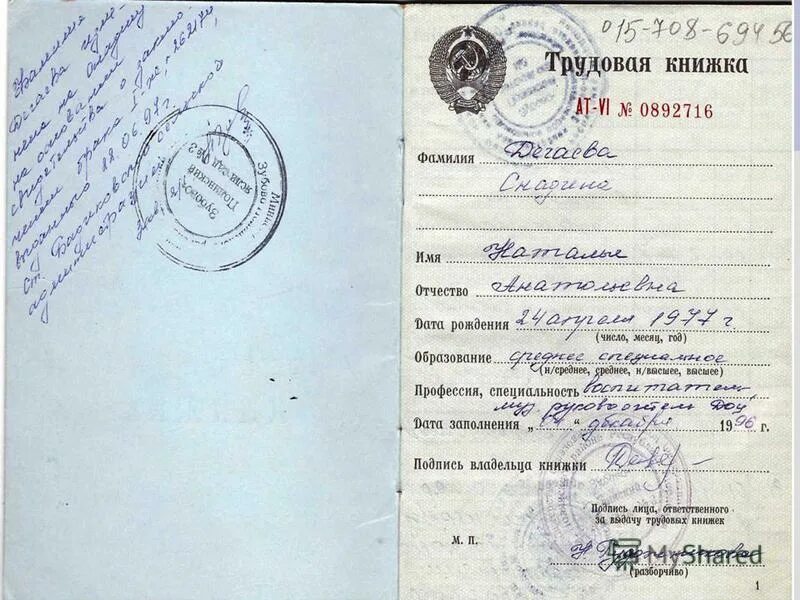 Фамилия
Дегаева изме-
нена на Снадину
на основании
свидетельства о заклю-
чении брака I-
выданного 18.06.97г.
администрацией
Зубово
Полянский
015-708-694 56
Трудовая книжка
АТ-VI № 0892716
Фамилия Дегаева
Снадина
Имя Наталья
Отчество Анатольевна
Дата рождения 24 апреля 1977 г
(число, месяц, год)
Образование среднее специальное
(н/среднее, среднее, н/высшее, высшее)
Профессия, специальность воспитатель,
муз. руководитель ДОУ
Дата заполнения „ “ декабря 1996 г.
Подпись владельца книжки
Подпись лица, ответственного
за выдачу трудовых книжек
М. П.
MyShared
(разборчиво)
1